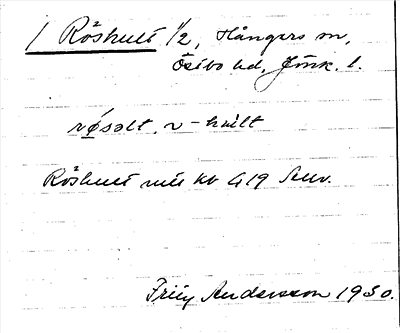 1 Röshult 1/2, Hångers sn,
Östbo hd, Jönk. l.
røsølt. v - hult
Röshult mtl kb 419 Senv.
Frity Andersson 1930.